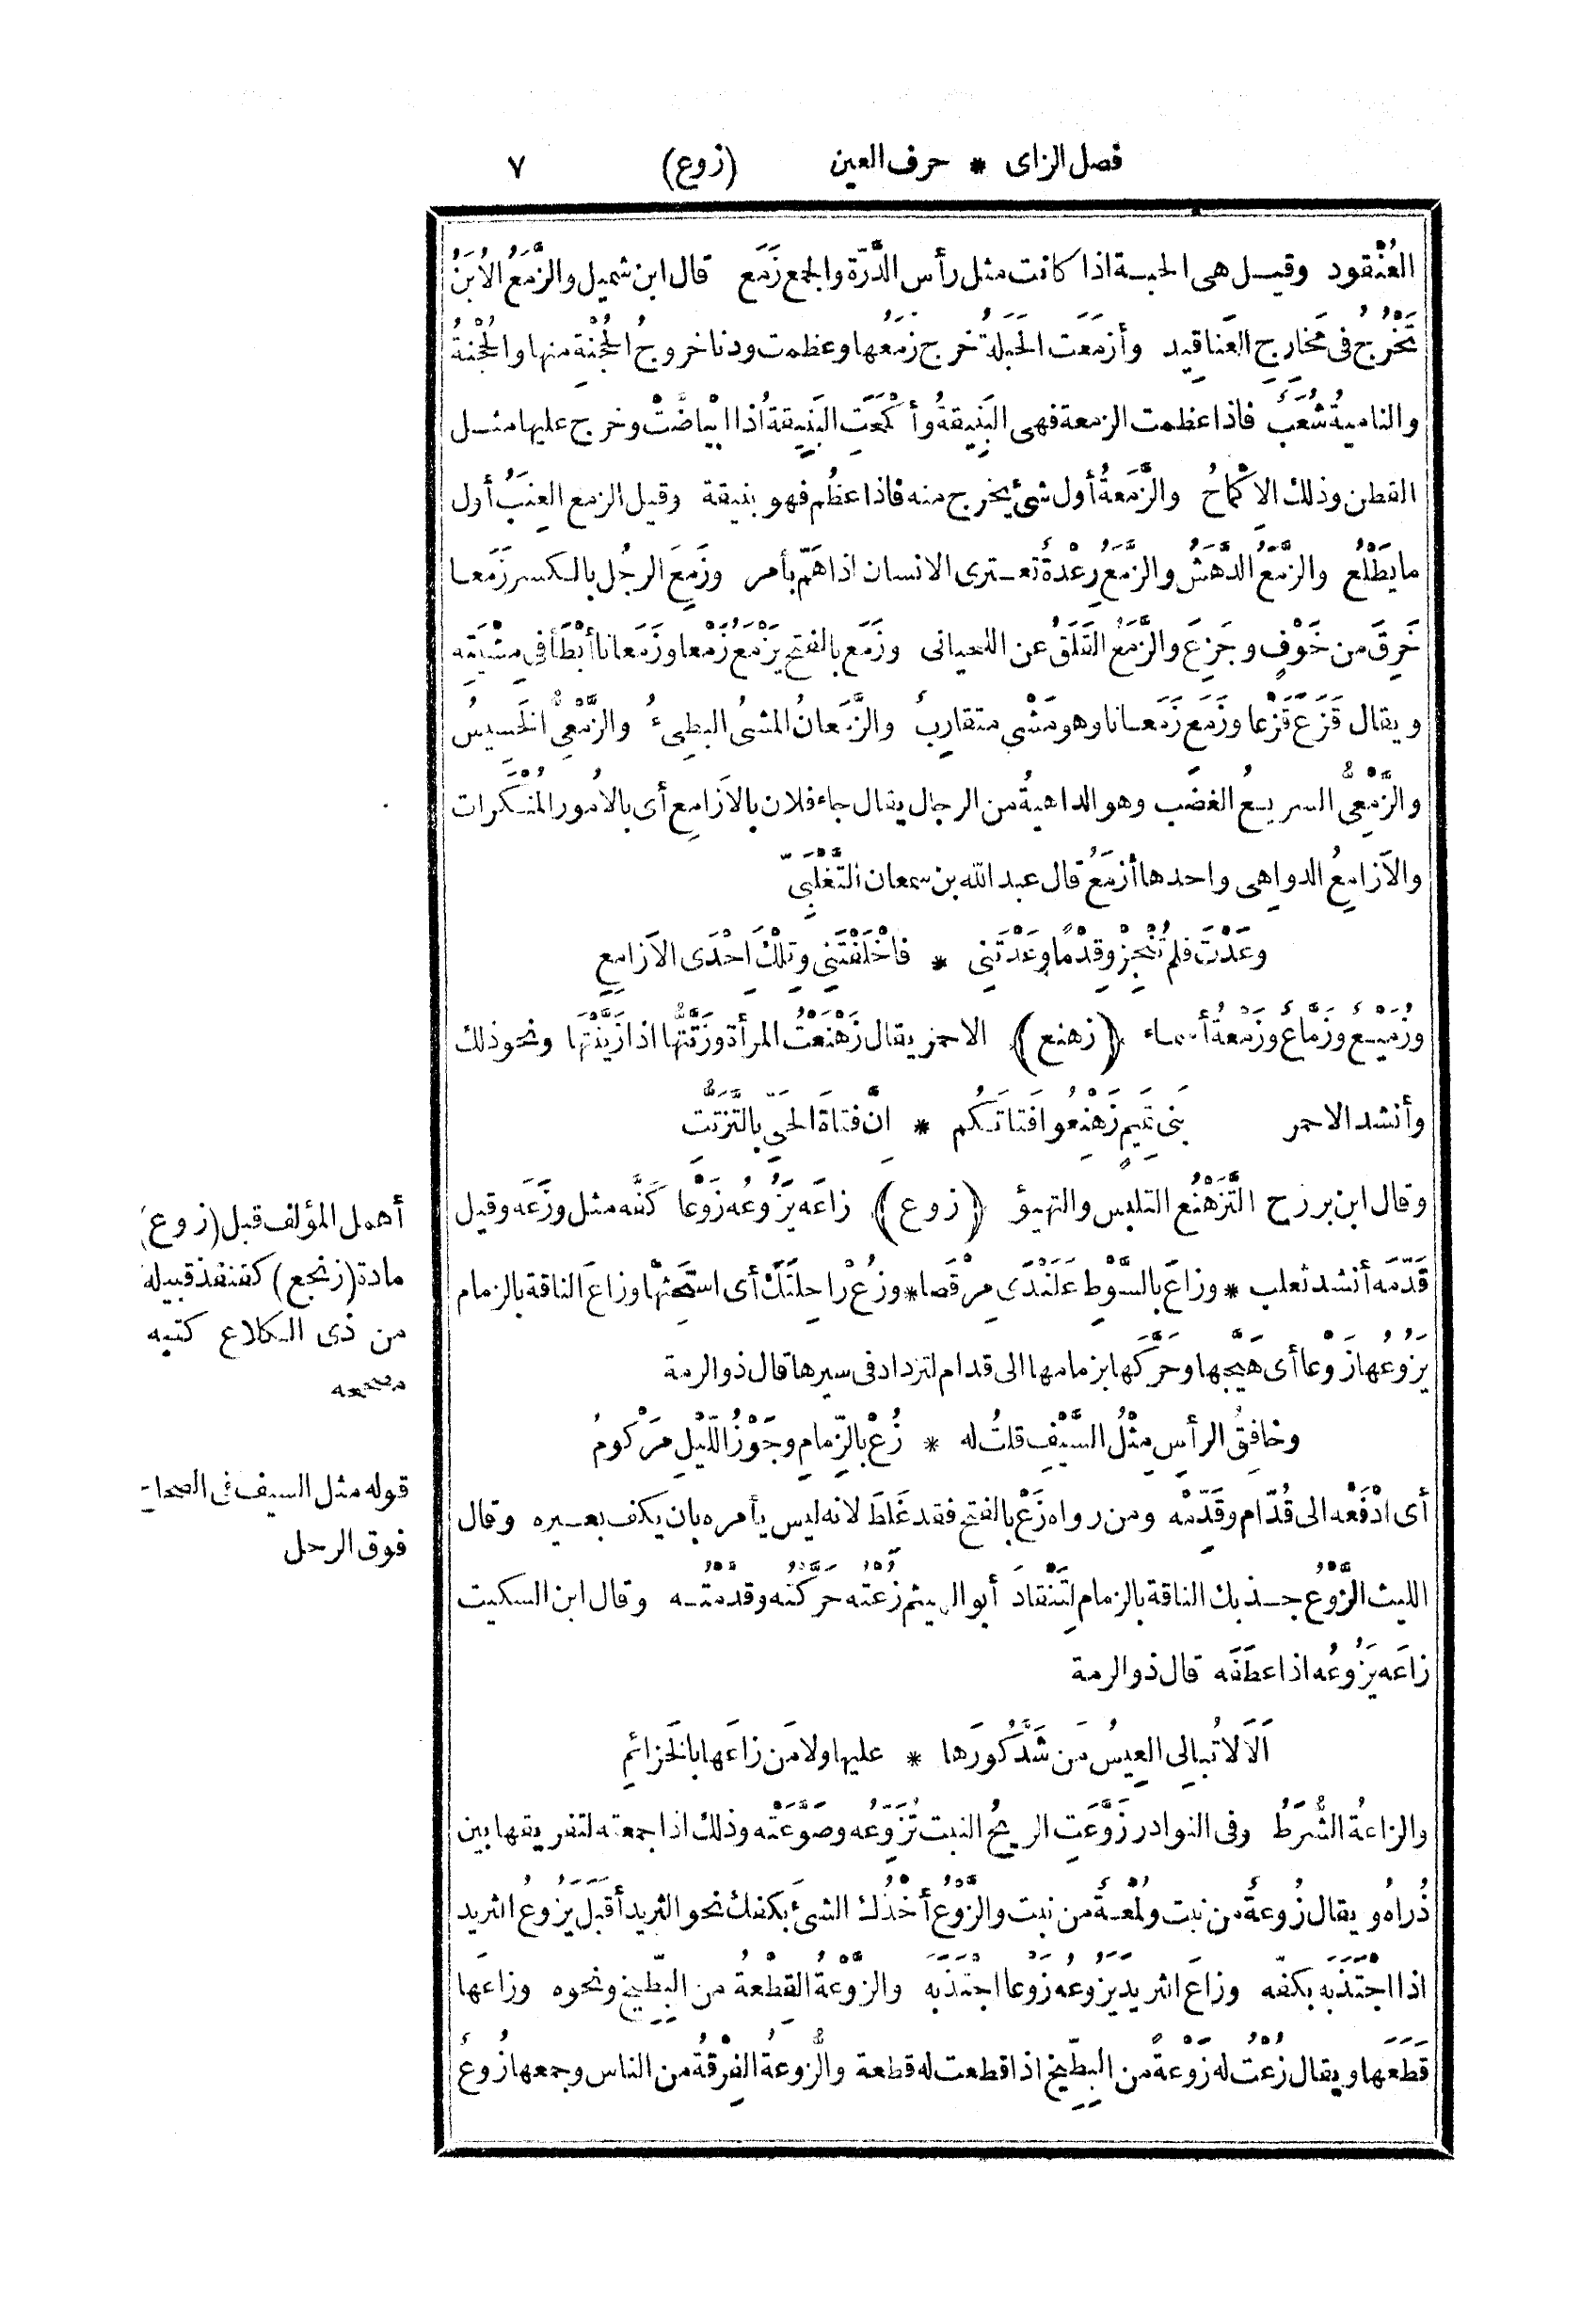 فصل الزاى * حرف العين (زوع) ٧
العُنْقود وقيل هى الحبة اذا كانت مثل رأس الذَّرّة والجمع زَمَع قال ابن شميل والزَّمَعُ الأُبَنُ
تَخْرُجُ فى مَخارِجِ العَناقِيدِ وأَزمَعَت الحَبَلةُ خرج زَمَعُها وعظمت ودنا خروجُ الحُجْنةِ منها والحُجْنةُ
والناميةُ شُعَبٌ فاذا عظمت الزمعة فهى البَنِيقةُ وأَكْمَحَتِ البَنِيقةُ اذا ابْياضَّتْ وخرج عليها مثل
القطن وذلك الاِكْماحُ والزَّمَعةُ أول شئ يخرج منه فاذا عظُم فهو بنيقة وقيل الزمع العِنَبُ أول
ما يَطْلُعُ والزَّمَعُ الدَّهَشُ والزَّمَعُ رِعْدةٌ تعترى الانسان اذا هَمّ بأمر وزَمِعَ الرجُل بالكسر زَمَعا
خَرِقَ من خَوْفٍ وجَزِعَ والزَّمَعُ القَلَقُ عن اللحيانى وزَمَع بالفتح يَزْمَعُ زَمْعا وزَمَعانا أَبْطَأَ فى مِشْيَتِه
ويقال قَزَعَ قَزْعا وزَمَع زَمَعانا وهو مَشْى متقارِبٌ والزَّمَعانُ المشىُ البطِىءُ والزَّمْعِىُّ الخَسِيسُ
والزَّمْعِىُّ السريعُ الغضَب وهو الداهيةُ من الرجال يقال جاء فلان بالاَزامِع أى بالأُمور المُنْكَرات
والاَزامِعُ الدواهِى واحدها أَزمَعُ قال عبد الله بن سمعان التَّغْلَبِىّ
وعَدْتَ فلم تُنْجِزْ وقِدْمًا وَعَدْتَنِى * فأَخْلَفْتَنِى وتِلْكَ اِحْدَى الاَزامِعِ
وزُمَيْعٌ وزَمّاعٌ وزَمْعةُ أسماء (زهنع) الاحمر يقال زَهْنَعْتُ المرأة وزَتَّتُّها اذا زَيَّنْتَها ونحو ذلك
وأنشد الاحمر بَنى تَمِيمٍ زَهْنِعُوا فَتاتَكُم * اِنَّ فتاةَ الحَىِّ بالتَّزَتُّتِ
وقال ابن بزرج التَّزَهْنُع التلبس والتهيؤ (زوع) زاعَه يَزُوعُه زَوْعا كَفَّه مثل وزَعَه وقيل
قَدّمَه أنشد ثعلب * وزاعَ بالسَّوْطِ عَلَنْدَى مِرْقَصا * وزُعْ راحِلَتَكَ أى استَحِثَّها وزاعَ الناقة بالزمام
يَزُوعُها زَوْعا أى هَيَّجها وحَرَّكها بزمامها الى قدام لتزداد فى سيرها قال ذو الرمة
وخافِقُ الرأسِ مِثْلُ السَّيْفِ قلتُ له * زُعْ بالزِّمامِ وجَوْزُ اللَّيْلِ مَرْكومُ
أى ادْفَعْه الى قُدّام وقَدِّمْه ومن رواه زَعْ بالفتح فقد غَلَطَ لانه ليس يأمره بأن يكف بعيره وقال
الليث الزَّوْعُ جذبك الناقة بالزمام لِتَنْقادَ أبو الهيثم زُعْتُه حَرَّكْتُه وقَدَّمْتُه وقال ابن السكيت
زاعَه يَزُوعُه اذا عطَفَه قال ذو الرمة
أَلَا لا تُبالِى العِيسُ مَن شَدَّ كُورَها * عليها ولا مَن زاعَها بالخَزائمِ
والزاعةُ الشُّرَطُ وفى النوادر زَوَّعَتِ الريحُ النبت تُزَوِّعُه وصَوَّعَتْه وذلك اذا جمعته لتفريقها بين
ذُراهُ ويقال زُوعةٌ من نبت ولُمْعةٌ من نبت والزَّوْعُ أَخْذُك الشىءَ بكفك نحو الثريد أَقبَلَ يَزُوعُ الثريد
اذا اجْتَذَبَه بكفّه وزاعَ الثريدَ يَزُوعُه زَوْعا اجْتَذَبَه والزَّوْعةُ القِطْعةُ من البِطِّيخ ونحوه وزاعَها
قَطَعَها ويقال زُعْتُ له زَوْعةً من البِطِّيخ اذا قطعت له قطعة والزُّوعةُ الفِرْقةُ من الناس وجمعها زُوعٌ
أهمل المؤلف قبل (زوع)
مادة (زنجع) كقنفذ قبيلة
من ذى الكلاع كتبه
مصححه
قوله مثل السيف فى الصحاح
فوق الرحل